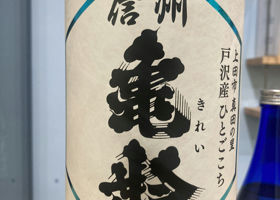 信州
上田市 真田の里
戸沢産 ひとごこち
きれい
亀齢